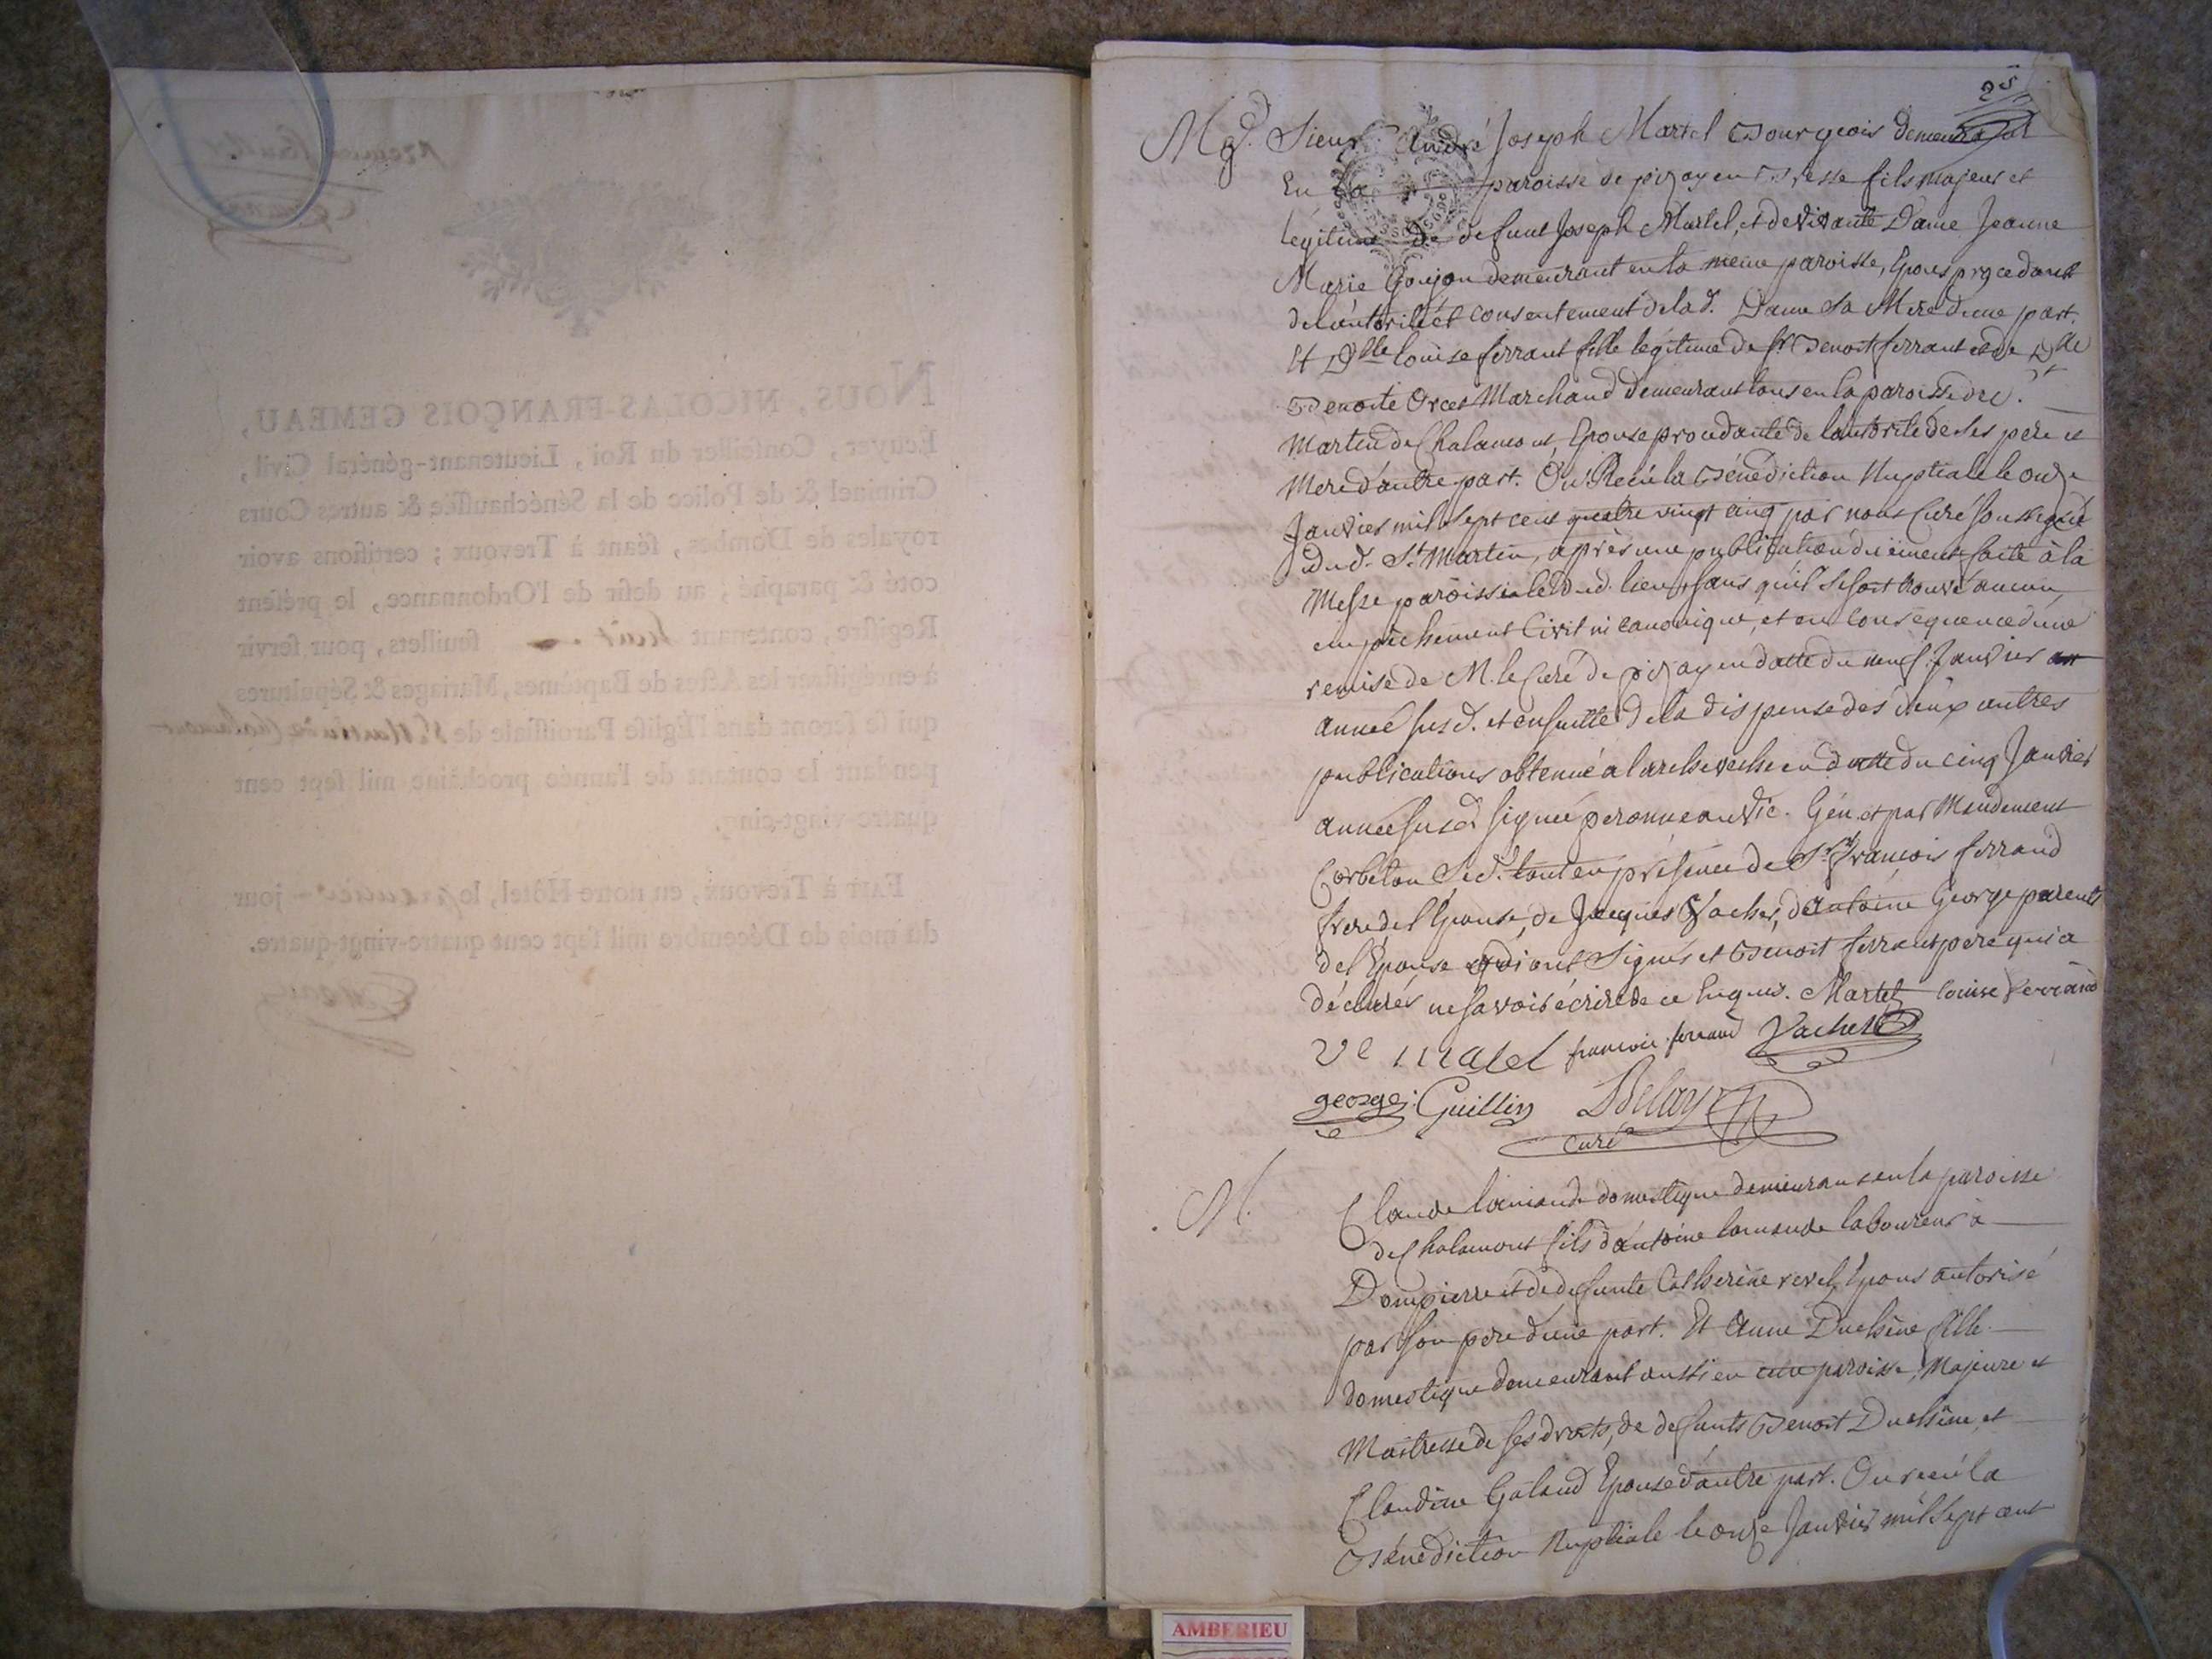 NOUS NICOLAS-FRANÇOIS GEMEAU,
Ecuyer, Conseiller du Roi, Lieutenant-général Civil,
Criminel & de Police de la Sénéchaussée & autres Cours
royales de Dombes, séant à Trevoux ; certifions avoir
coté & paraphé, au desir de l'Ordonnance, le présent
Registre, contenant huit feuillets, pour servir
à enrégistrer les Actes de Baptêmes, Mariages & Sépultures
qui se feront dans l'Église Paroissiale de St Martin de Chalamont
pendant le courant de l'année prochaine mil sept cent
quatre-vingt-cinq.
FAIT à Trevoux, en notre Hôtel, le premier jour
du mois de Décembre mil sept cent quatre-vingt-quatre.
25
Mgd. Sieur André Joseph Martel Bourgeois demeurant
En la paroisse de pizay en Bresse fils majeur et
légitime de defunt Joseph Martel, et de vivante Dame Jeanne
Marie Goujon demeurant en la meme paroisse, Epous procedant
de l'autorité et consentement de lad. Dame sa Mere d'une part.
Et Dlle louise ferrant fille légitime de sr Benoit ferrant et de Dlle
Benoite Orcet Marchand demeurant tous en la paroisse de St
Martin de Chalamont, Epouse procedante de l'autorité de ses pere et
Mere d'autre part. Ont Receu la Bénédiction Nuptiale le onze
Janvier mil sept cent quatre vingt cinq par nous Curé soussigné
dud. St Martin, après une publication duement faite à la
Messe paroissiale dud. lieu, sans qu'il se soit trouvé aucun
empêchement Civil ni canonique, et en consequence d'une
remise de M. le Curé de pizay en datte du neuf Janvier
année susd. et ensuitte de la dispense des deux autres
publications obtenue a l'archeveche en datte du cinq Janvier
année susd. signée peronneau Vic. Gén. et par Mandement
Corbelon Sec. tout en présence de Sr françois ferrand
frere de l'Epouse, de Jacques Vacher, d'antoine George parents
de l'Epouse qui ont signés et Benoit ferrant pere qui a
déclaré ne savoir écrire de ce Enquis. Martel louise ferrand
françois ferrand Vacher
george Guillin Delay
curé
M. Claude lamande domestique demeurant en la paroisse
de Chalamont fils d'antoine lamande laboureur à
Dompierre et de defunte Catherine revel, Epous autorisé
par son pere d'une part. Et Anne Duchêne fille
domestique demeurant aussi en cette paroisse, Majeure et
Maitresse de ses droits, de defunts Benoit Duchêne et
Claudine Galand Epouse d'autre part. Ont receu la
Bénédiction Nuptiale le onze Janvier mil sept cent
AMBERIEU